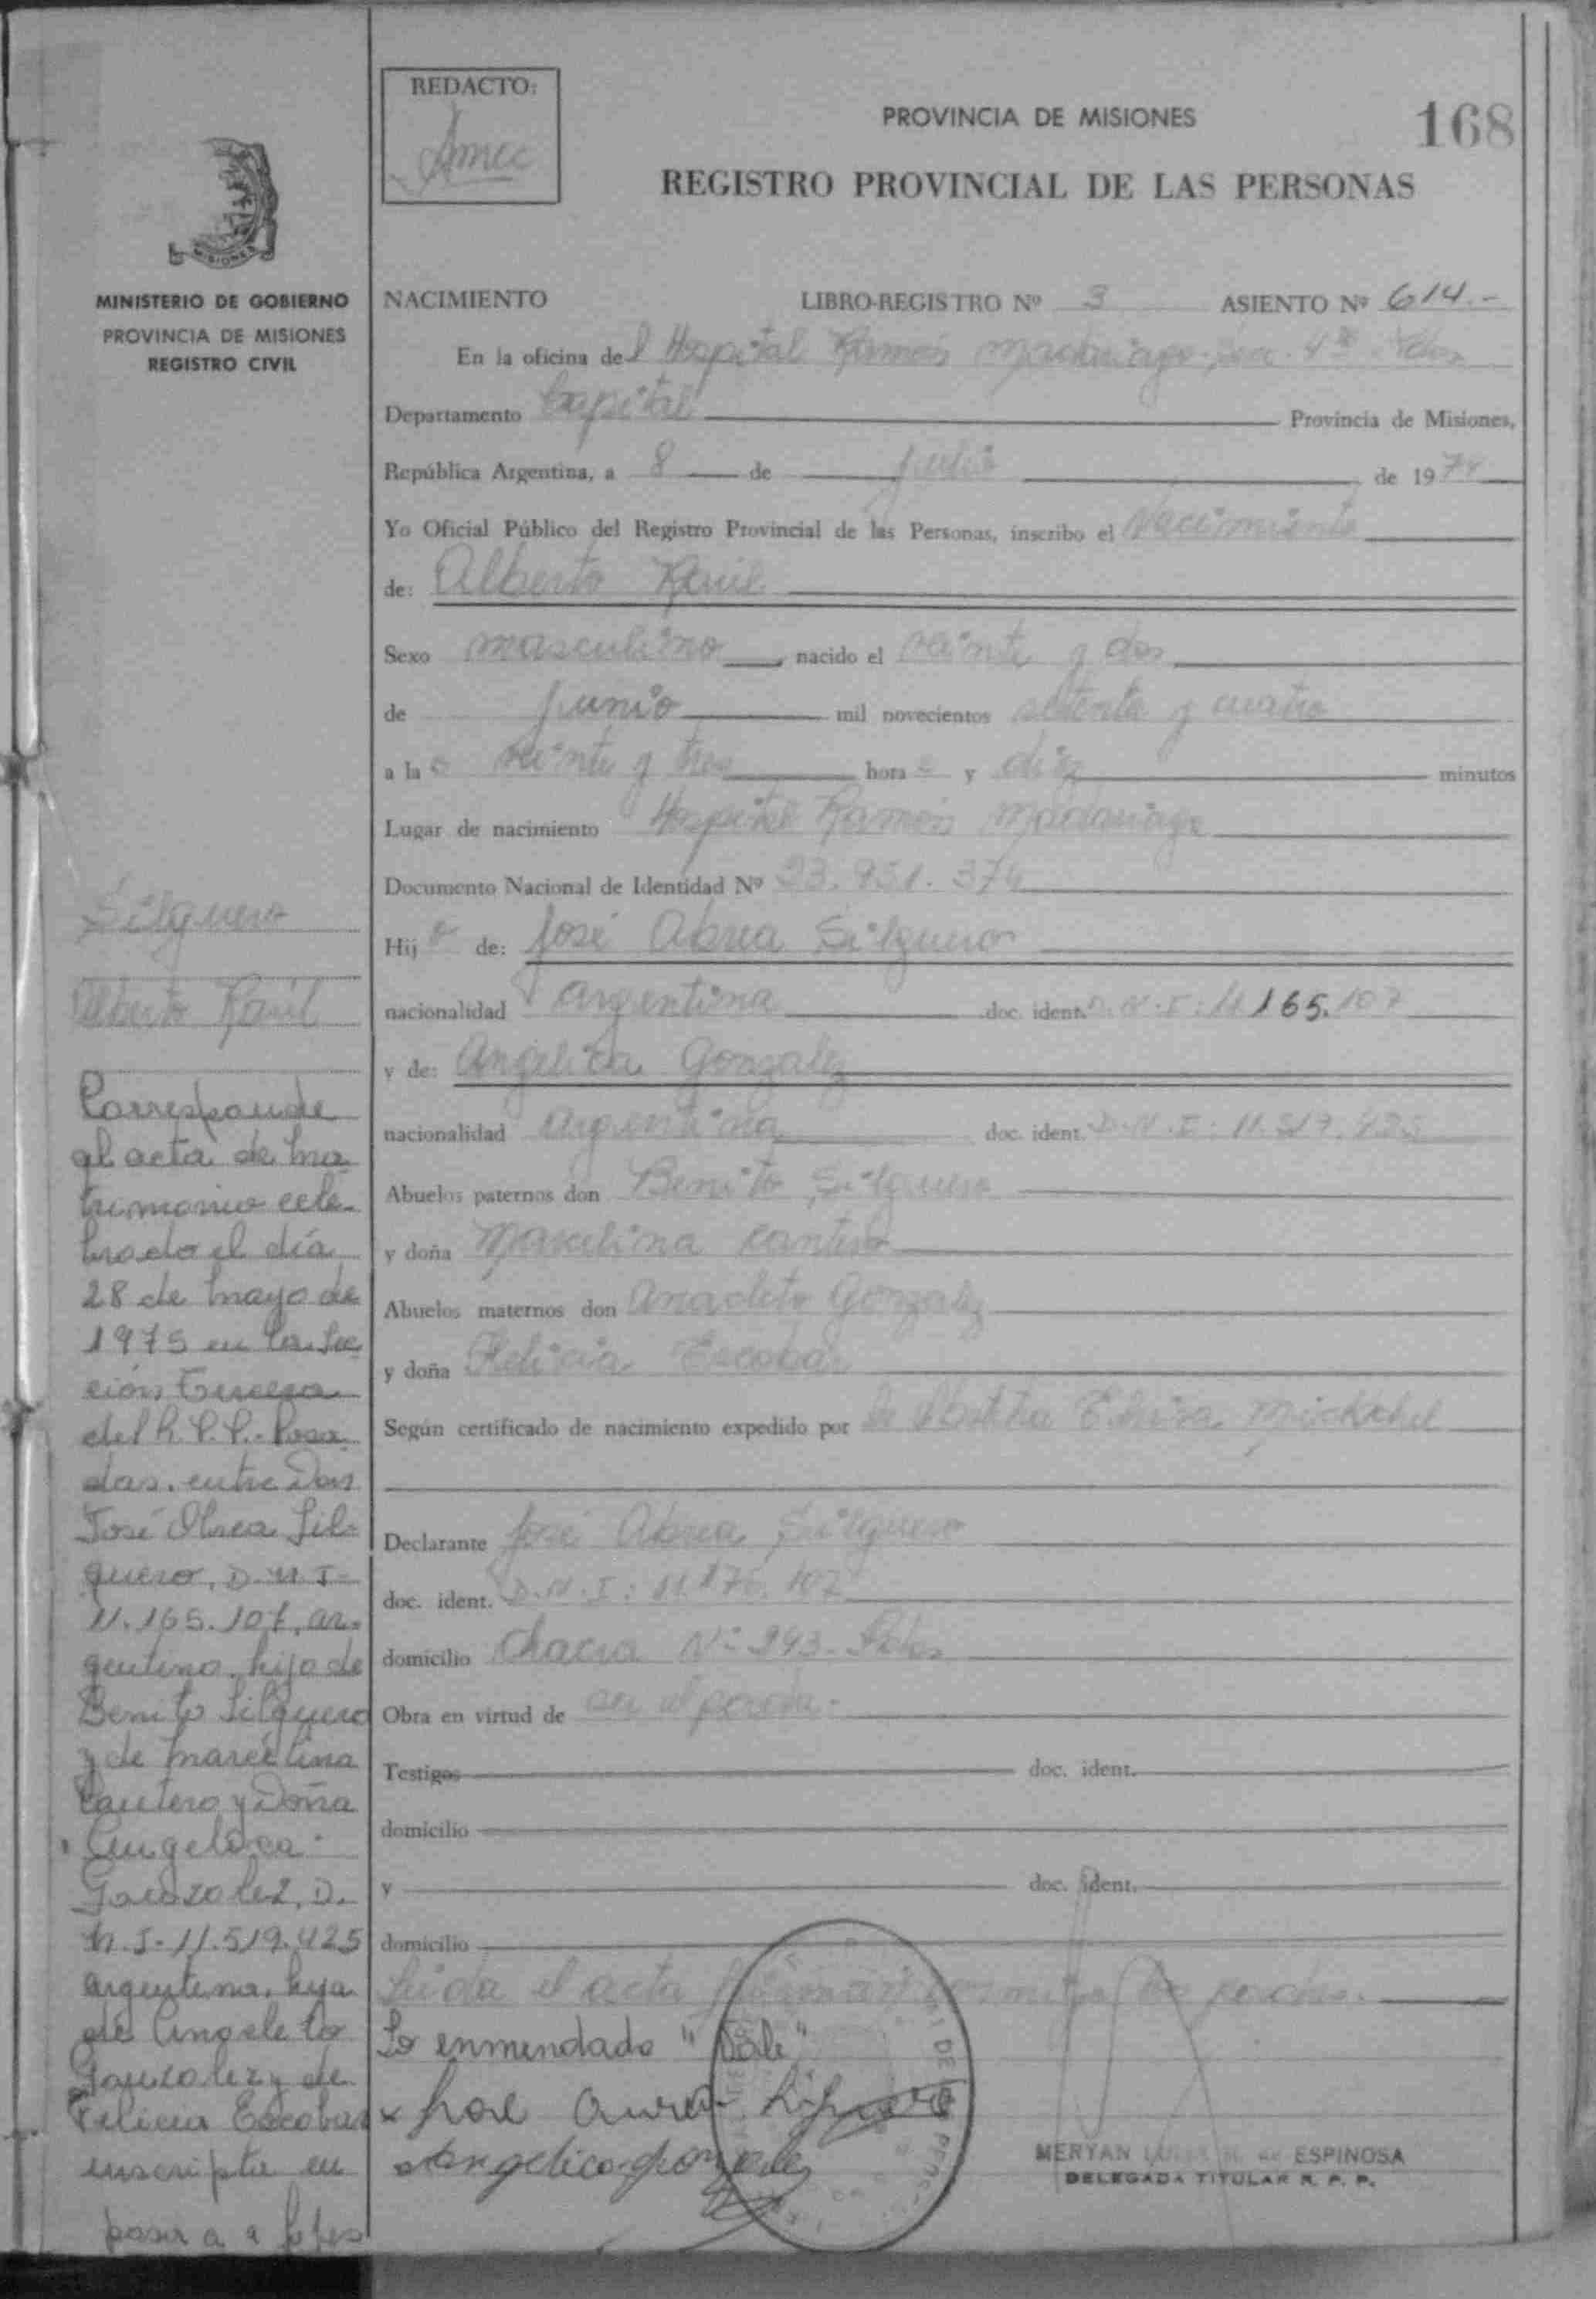 REDACTO:
PROVINCIA DE MISIONES
168
REGISTRO PROVINCIAL DE LAS PERSONAS
MISIONES
MINISTERIO DE GOBIERNO
PROVINCIA DE MISIONES
REGISTRO CIVIL
NACIMIENTO LIBRO-REGISTRO Nº 3 ASIENTO Nº 614.-
En la oficina del Hospital Ramón Madariaga
Departamento Capital Provincia de Misiones,
República Argentina, a 8 de julio de 1974
Yo Oficial Público del Registro Provincial de las Personas, inscribo el Nacimiento
de: Alberto Raúl
Sexo masculino, nacido el veinte y dos
de junio mil novecientos setenta y cuatro
a las veinte y tres horas y diez minutos
Lugar de nacimiento Hospital Ramón Madariaga
Documento Nacional de Identidad Nº 23.951.374
Hijo de: José Abrea Silguero
nacionalidad argentina doc. ident. D.N.I: 11.165.107
y de: Angelica Gonzalez
nacionalidad argentina doc. ident. D.N.I: 11.519.425
Abuelos paternos don Benito Silguero
y doña Marcelina Cantero
Abuelos maternos don Anacleto Gonzalez
y doña Felicia Escobar
Según certificado de nacimiento expedido por la
Declarante José Abrea Silguero
doc. ident. D.N.I: 11.175.107
domicilio Chacra Nº 293-
Obra en virtud de
Testigos doc. ident.
domicilio
y doc. ident.
domicilio
Leida el acta
Lo enmendado "Vale"
Angelica gonzalez
MERYAN ESPINOSA
DELEGADA TITULAR R. P. P.
Silguero
Alberto Raúl
Corresponde
al acta de ma
trimonio cele-
brado el día
28 de mayo de
1975 en la Sec
ción Tercera
del R.P.P.- Posa
das. entre Don
José Abrea Sil-
guero, D.N.I-
11.165.107, ar-
gentino, hijo de
Benito Silguero
y de Marcelina
Cantero y Doña
Angelica
Gonzalez, D.
N.I-11.519.425
argentina, hija
de Anacleto
Gonzalez y de
Felicia Escobar
inscripta en
pasa a